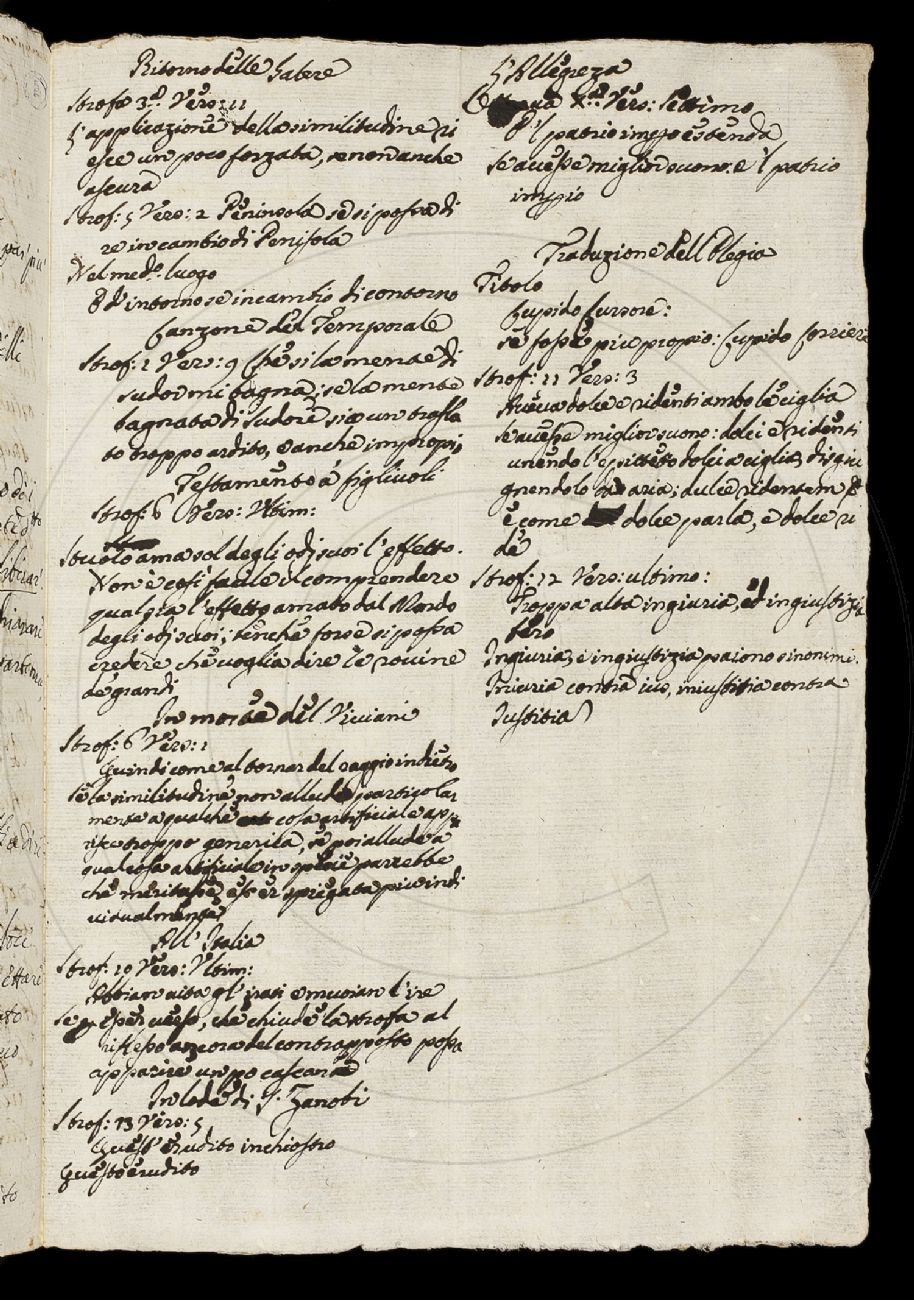 Ritorno delle Galere
Strofa 3.ª Vers: 11
L'applicazione della similitudine ri
esce un poco forzata, se non anche
oscura
Strof: 5 Vers: 2 Peninsola se si possa di
re in cambio di Penisola
Nel med.º luogo
E d'intorno se in cambio di contorno
Canzone del Temporale
Strof: 1 Vers: 9 Che si la mena e di
sudor mi bagna; se la mente
bagnata di sudore sia un trasla
to troppo ardito, o anche improprio
Testamento a' figlivoli
Strof: 6 Vers: Vltim:
Stuolo ama sol degli odj suoi l'effetto.
Non è così facile il comprendere
qual sia l'effetto amato dal Mondo
degli odj suoi; benche forse si possa
credere che voglia dire le rovine
de grandi
In morte del Viviani
Strof: 6 Vers: 1
Quindi come al tornar del raggio indietro
Se la similitudine non allude particolar
mente a qualche cosa artificiale ap
troppo generica, se poi allude a
qualcosa artificiale in specie parrebbe
che meritasse esser spiegata piu indi
vidualmente
All' Italia
Strof: 10 Vers: Vltim:
Abbian vita gl' irati e muoian l'ire
Se per esser verso, che chiude la strofa al
riflesso ancora del contrapposto possa
apparire un po cascante
In lode di S: Zanobi
Strof: 13 Vers: 5
Quest' erudito inchiostro
Questo erudito
L'Allegreza
X.ª Vers: Settimo
E 'l patrio impio estenda
Se avesse miglior suono: e 'l patrio
impio
Traduzione dell' Elegia
Titolo
Cupido Cursore:
se fosse piu propio: Cupido Corriere
Strof: 11 Vers: 3
Aveva dolce e ridenti ambo le ciglia
Se avesse miglior suono: dolci e ridenti
unendo l'epitteto dolci a ciglia, disgiu
gnendolo da aria; dulce ridentem
è come dolce parla, e dolce ri
de
Strof: 12 Vers: ultimo:
Troppa alta ingiuria, ed ingiustizia
fero
Ingiuria, e ingiustizia paiono sinonimi.
Iniuria contra ius, iniustitia contra
Iustitia